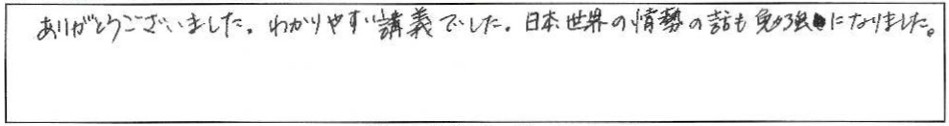 ありがとうございました。わかりやすい講義でした。日本世界の情勢の話も勉強になりました。